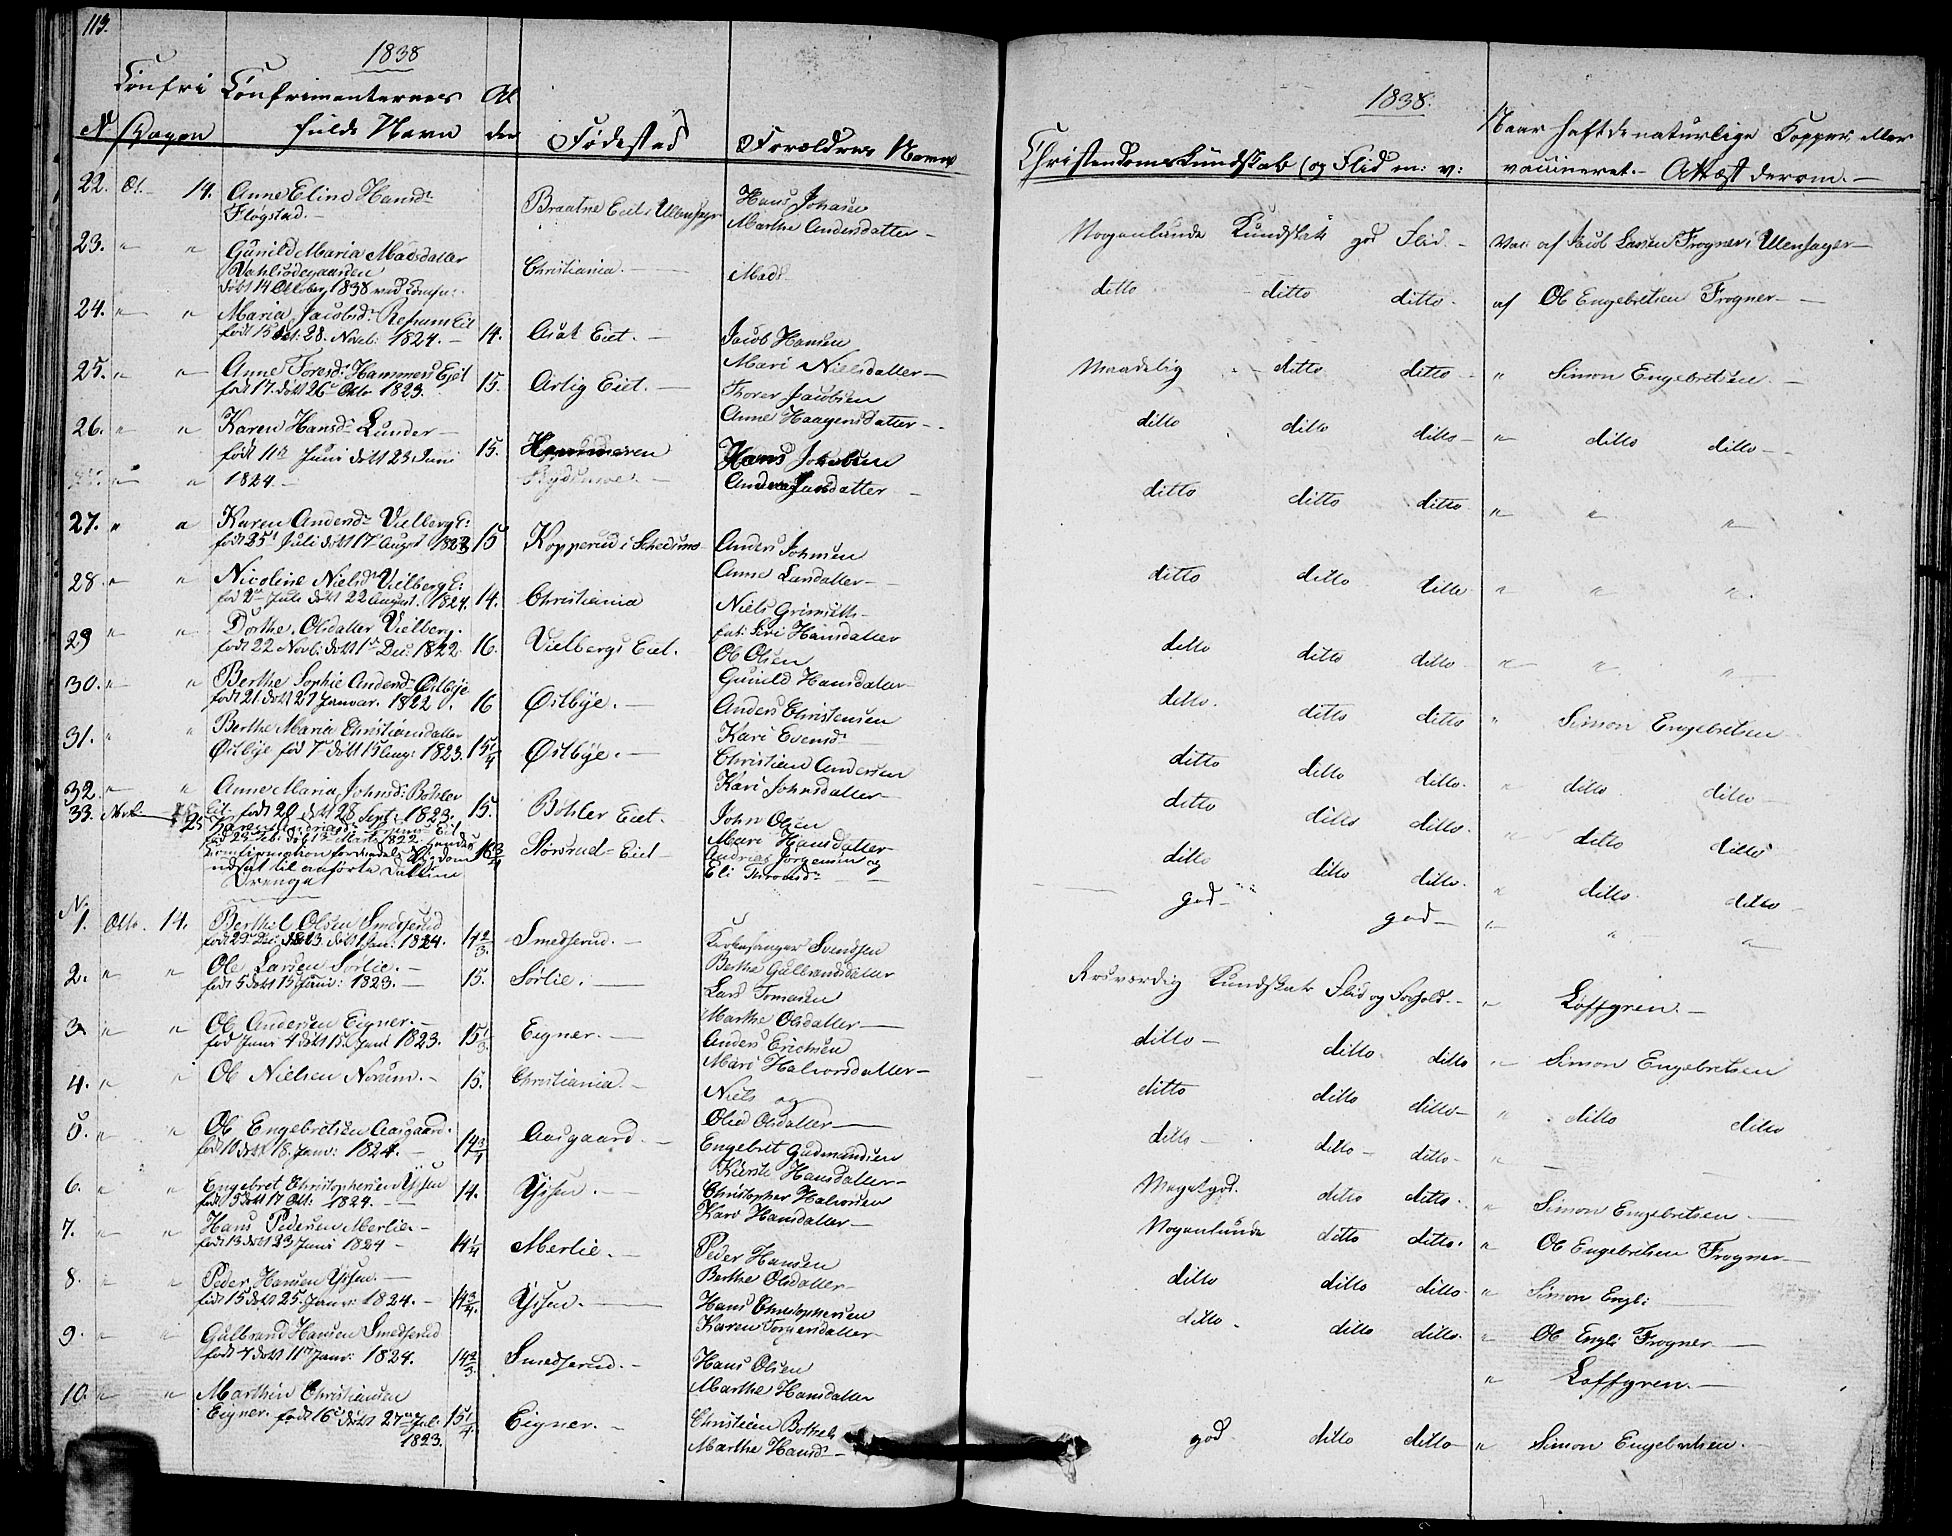 113.
1838
Confir Confirmanternes Al
N Dagen fulde Navn der Fødested Forældres Navne
22. Oct. 14. Anne Eline Hansdr
Flogstad.- Braatne Eiet i Ullensager Hans Johnsen
Marthe Andersdatter -
23. " " Gunild Maria Madsdatter
døbt 14 Oktober 1838 ved Confir: Christiania. - Mads
24. " " Maria Jacobsdr Refsum Eit
født 15 Oct: 28. Novb: 1824. - 14. Asak Eiet. - Jacob Hansen
Mari Nielsdatter -
25. " " Anne Toresdr Hammers Ejet
født 17. døbt 26 Octo 1823. 15. Arlig Eiet. - Thorer Jacobsen
Anne Haagensdatter -
26. " " Karen Hansdr Lunder -
født 11te Juni døbt 23 Juni 15. Hans Johnsen
" " 1824. -
27. " " Karen Andersdr Vielberg E:
født 25 Juli døbt 17 August 1823 15 Kopperud i Schedsmo Anders Johnsen
Anne Larsdatter -
28. " " Nicoline Nielsdr Vielberg E:
fød 2den Juli døbt 22 August. 1824. 14. Christiania Niels
Siri Hansdatter
29 " " Dorthe Olsdatter Vielberg.
født 22 Novb: døbt 1ste Dec: 1822. 16. Vielbergs Eiet. Ole Olsen
Gunild Hansdatter
30. " " Berthe Sophie Andersdr Østbye
født 21 døbt 27 Januar. 1822. 16 Østbye. - Anders Christensen
Kari Evensdr -
31. " " Berthe Maria Christiansdatter
Østbye fød 7de døbt 15 Aug: 1823. 15 1/4 Østbye. - Christian Andersen
Kari Johnsdatter -
32 " " Anne Maria Johnsdr Bøhler
Eit. født 20 døbt 28 Sept: 1823. 15. Bøhler Eiet. John Olsen
Mari Hansdatter
33. Novb. 25 16 3/4 Størsrud-Eiet Andreas Jørgensen og
Eli Thronsdr
Drenge
N.
1. Octo. 14. Berthel Olsen Smedsrud
født 29 Dec: 1823. døbt 1 Jan: 1824. 14 2/3 Smedsrud. - Kirkesanger Svendsen
Berthe Gulbrandsdatter
2. " " Ole Larsen Sørlie. -
født 5 døbt 15 Juni: 1823. - 15. Sørlie. - Lars Tomasen
Marthe Olsdatter -
3 " " Ole Andersen Eigner. -
fød Juni 4 døbt 15 Juni 1823. 15 1/3 Eigner. - Anders Erichsen
Mari Halvorsdatter -
4. " " Ole Nielsen Norum. - 15. Christiania. - Niels og
Olea Olsdatter -
5. " " Ole Engebretsen Aasgaard.
født 10 døbt 18. Janv: 1824. - 14 3/4 Aasgaard. - Engebret Gudmundsen
Kirsti Hansdatter -
6. " " Engebret Christophersen Ysen
født 5 døbt 17 Oct: 1824. - 14. Ysen. - Christopher Halvorsen
Kari Hansdatter -
7. " " Hans Pedersen Merlie. -
født 13 døbt 23 Juni 1824 - 14 1/4 Merlie. - Peder Hansen
Berthe Olsdatter -
8. " " Peder Hansen Ysen. -
født 15 døbt 25 Janv: 1824. - 14 3/4. Ysen. - Hans Christophersen
Karen Torgersdatter -
9. " " Gulbrand Hansen Smedsrud
født 4 døbt 11te Janv: 1824. 14 2/3. Smedsrud. - Hans Olsen
Marthe Hansdatter
10. " " Marthin Christiansen
Eigner. født 16 døbt 27de Jul. 15 1/4. Eigner. - Christian
1823. Marthe Hansdr -
1838.
Christendomskundskab (og Flid m: v: Naar haft de naturlige Kopper eller
vaccineret.- Attest derom.-
Nogenlunde Kundskab god Flid - Vac: af Jacob Larsen Frogner i Ullensager -
ditto ditto ditto - af Ole Engebretsen Frogner -
Maadelig ditto ditto " Simon Engebretsen. -
ditto ditto ditto - " ditto ditto -
ditto ditto ditto " " "
ditto ditto ditto " " "
ditto ditto ditto " " "
ditto. ditto ditto " Simon Engebretsen
ditto ditto ditto. " ditto ditto -
ditto ditto ditto. " ditto ditto
ditto ditto ditto. " ditto. ditto
god - god - " " "
Roesværdig Kundskab Flid og Forhold. - " Løffgren. -
ditto - ditto ditto " Simon Engebretsen
ditto ditto ditto - " ditto ditto
ditto - ditto - ditto - " -
Meget god. ditto ditto. " Simon Engebretsen -
Nogenlunde ditto ditto. " Ole Engebretsen Frogner -
ditto ditto ditto. " Simon Engb: -
ditto - ditto ditto. " Ole Engb: Frogner -
" Løffgren. -
god ditto ditto - " Simon Engebretsen. -